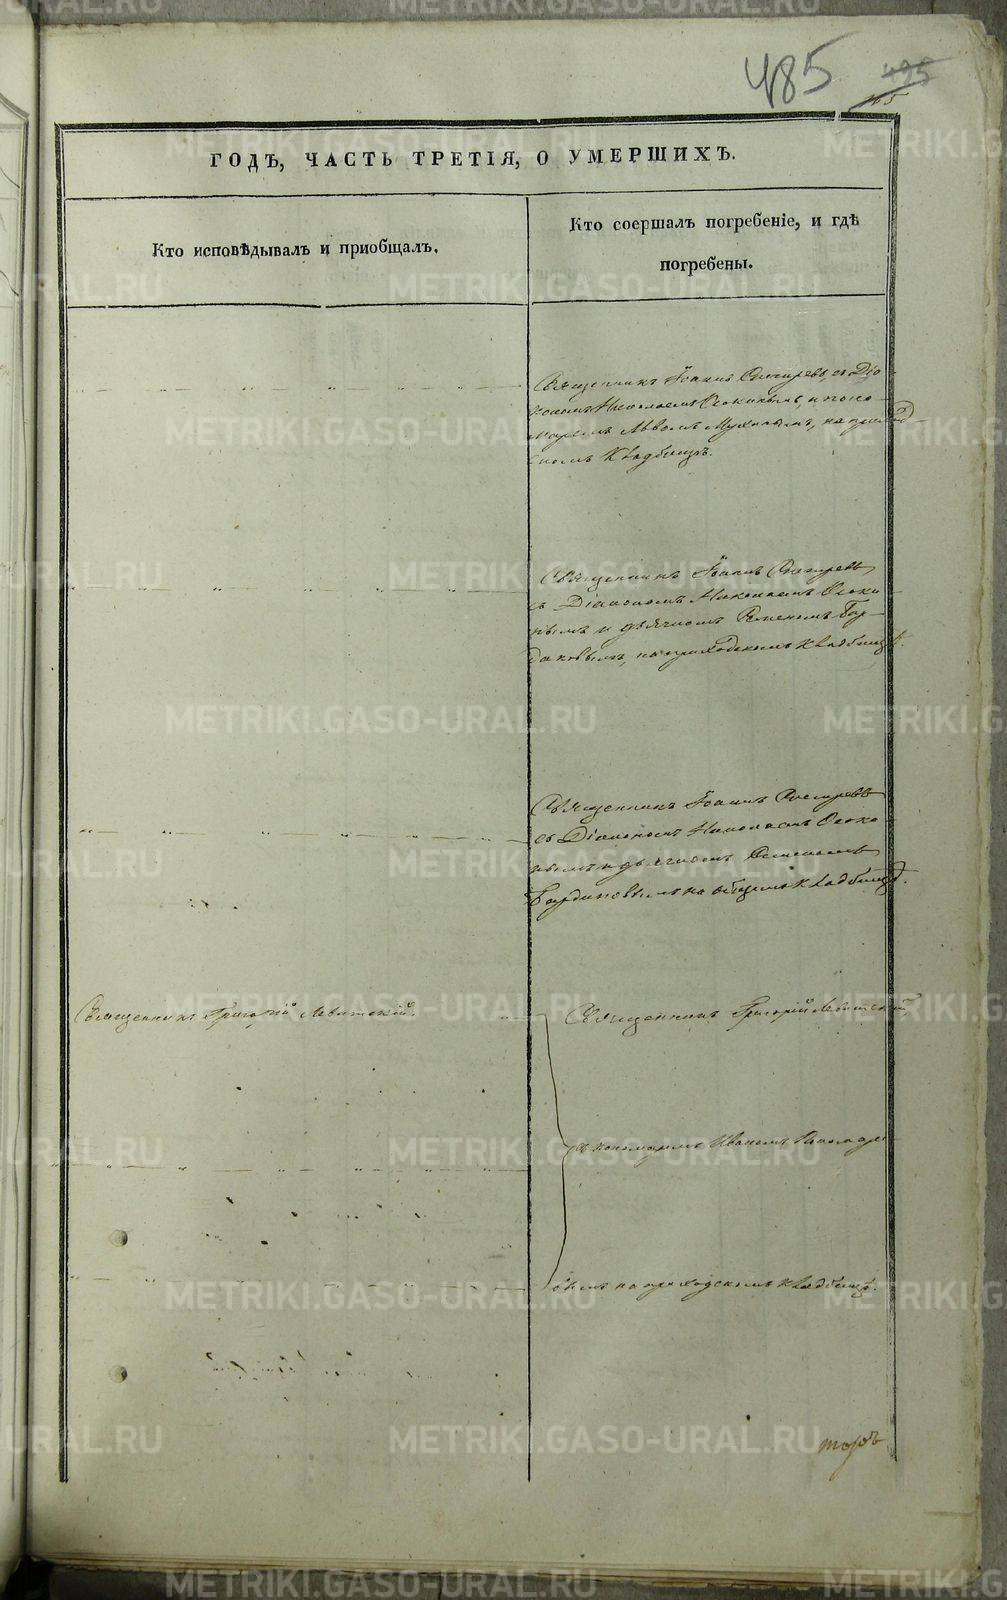 485 495
ГОДЪ, ЧАСТЬ ТРЕТІЯ, О УМЕРШИХЪ.
Кто исповѣдывалъ и приобщалъ.
Кто соершалъ погребеніе, и гдѣ
погребены.
Священникъ Іоаннъ съ Діа-
кономъ Николаемъ и поно-
маремъ Львомъ Мухинымъ, на приход
скомъ Кладбищѣ.
Священникъ Іоаннъ
съ Діакономъ Николаемъ
нымъ и дьячкомъ Семеномъ Бор-
даковымъ, на приходскомъ кладбищѣ.
Священникъ Іоаннъ
съ Діакономъ Николаемъ
нымъ и дьячкомъ Семеномъ
на общемъ Кладбищѣ.
Священникъ Григорій Левитскій.
Священникъ Григорій Левитскій
съ пономаремъ Иваномъ Пономаре
вымъ на приходскомъ кладбищѣ.
торъ
METRIKI.GASO-URAL.RU